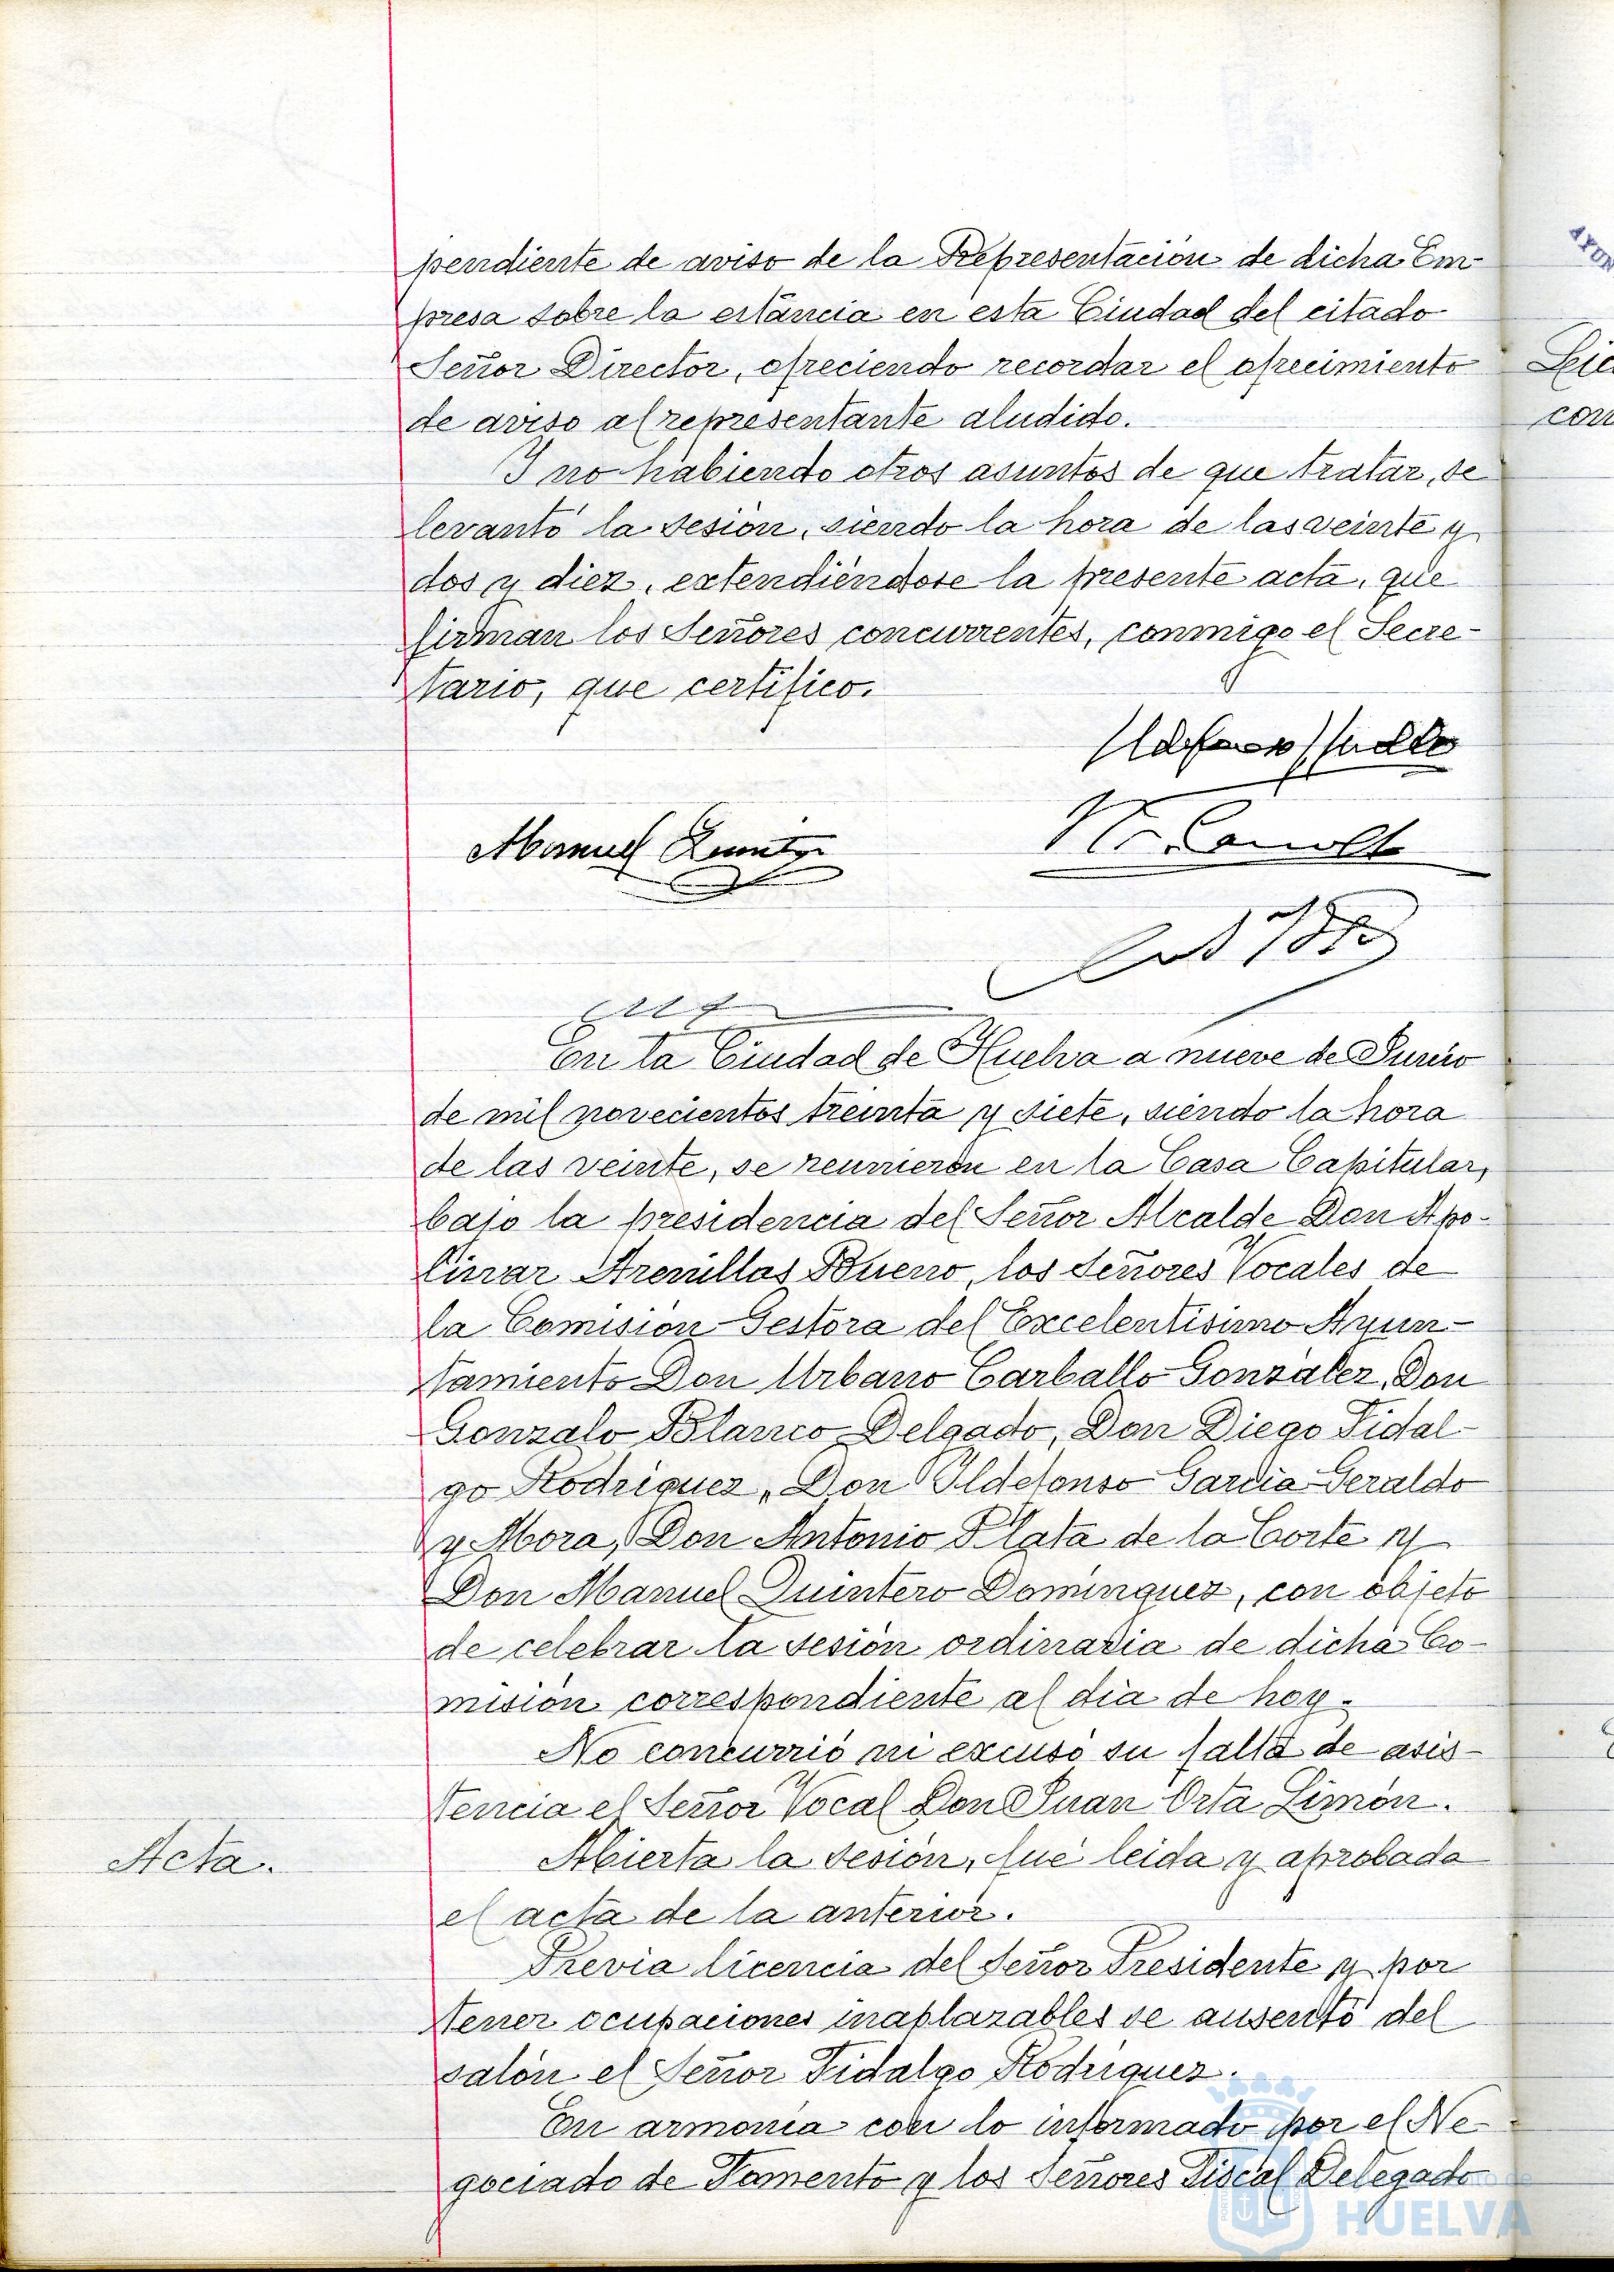 pendiente de aviso de la Representación de dicha Em-
presa sobre la estáncia en esta Ciudad del citado
Señor Director, ofreciendo recordar el ofrecimiento
de aviso al representante aludido.
I no habiendo otros asuntos de que tratar, se
levantó la sesión, siendo la hora de las veinte y
dos y diez, extendiéndose la presente acta, que
firman los Señores concurrentes, conmigo el Secre-
tario, que certifico.
Manuel
En la Ciudad de Huelva a nueve de Junio
de mil novecientos treinta y siete, siendo la hora
de las veinte, se reunieron en la Casa Capitular,
bajo la presidencia del Señor Alcalde Don Apo-
linar Arenillas Bueno, los Señores Vocales de
la Comisión Gestora del Excelentísimo Ayun-
tamiento Don Urbano Carballo González, Don
Gonzalo Blanco Delgado, Don Diego Fidal-
go Rodriguez, Don Ildefonso Garcia Geraldo
y Mora, Don Antonio Plata de la Corte y
Don Manuel Quintero Dominguez, con objeto
de celebrar la sesión ordinaria de dicha Co-
misión correspondiente al dia de hoy.
No concurrió ni excusó su falta de asis-
tencia el Señor Vocal Don Juan Orta Limón.
Acta.
Abierta la sesión, fué leida y aprobada
el acta de la anterior.
Previa licencia del Señor Presidente y por
tener ocupaciones inaplazables se ausentó del
salón el Señor Fidalgo Rodriguez.
En armonia con lo informado por el Ne-
gociado de Fomento y los Señores Fiscal Delegado
HUELVA